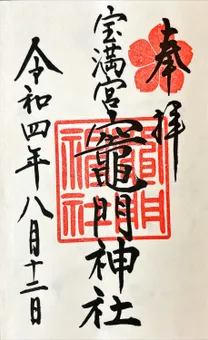 奉拝
宝満宮
竈門神社
令和四年八月十二日